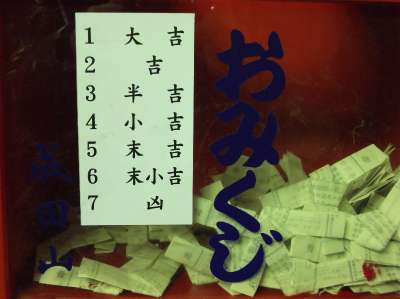 1 大 吉
2 吉
3 半 吉
4 小 吉
5 末 吉
6 末小吉
7 凶
おみくじ
成田山